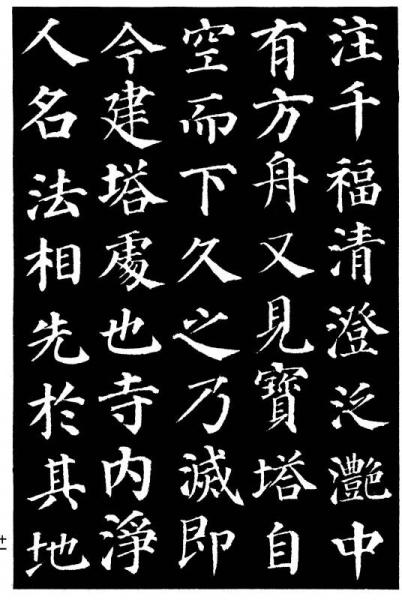 注千福清澄泛灔中
有方舟又見寶塔自
空而下久之乃滅即
今建塔處也寺内淨
人名法相先於其地
十一